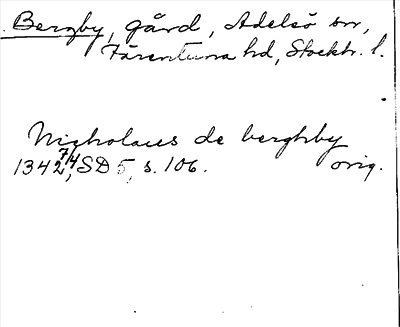 Bergby, gård, Adelsö sn,
Färentuna hd, Stockh. l.
Nicholaus de berghby
1342 7/4, SD 5, s. 106. orig.